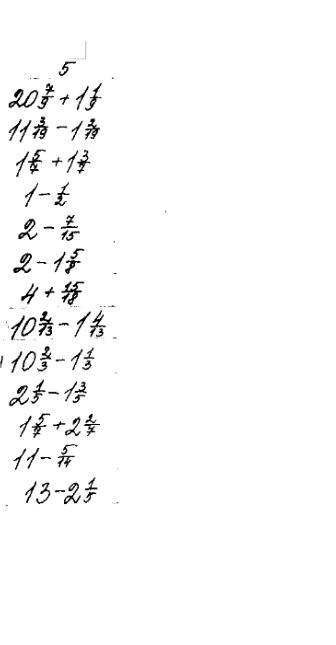 5
20 7/9 + 1 1/9
11 3/19 - 1 2/19
1 5/7 + 1 3/7
1 - 1/2
2 - 7/15
2 - 1 5/8
4 + 15/18
10 2/13 - 1 4/13
10 2/3 - 1 1/3
2 1/5 - 1 3/5
1 5/7 + 2 2/7
11 - 5/14
13 - 2 1/5